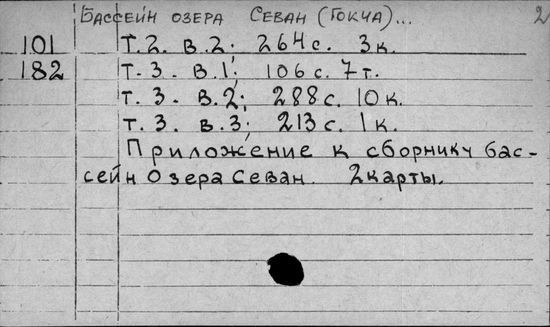 Бассейн озера Севан (Гокча)... 2
101 Т. 2. в. 2; 264 с. 3 к.
182 Т. 3. в. 1; 106 с. 7 т.
т. 3. в. 2; 288 с. 10 к.
т. 3. в. 3; 213 с. 1 к.
Приложение к сборнику бас-
сейн озера Севан. 2 карты.